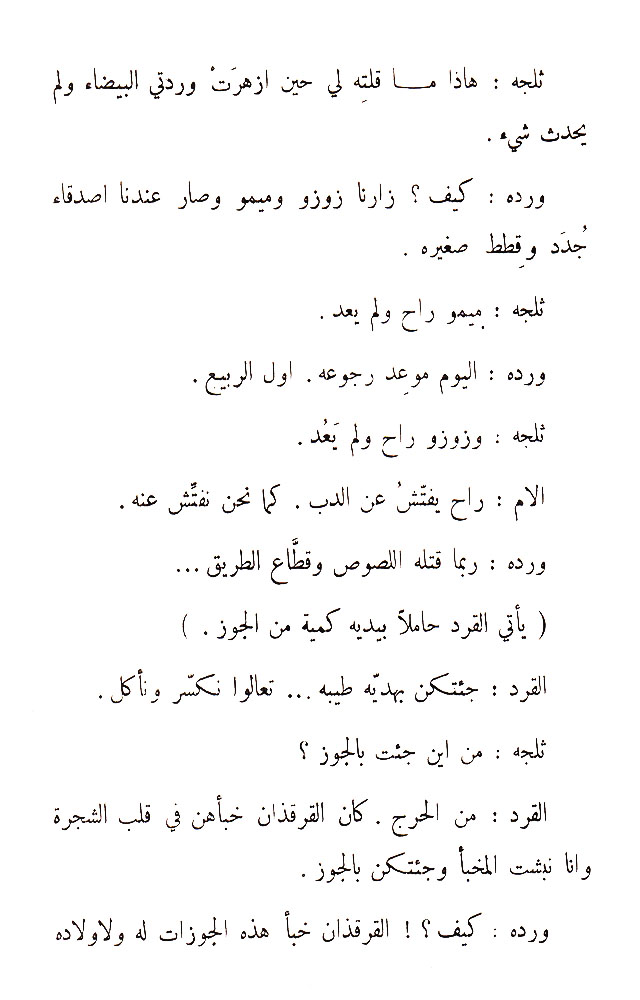 ثلجه : هاذا مــــا قلتِه لي حين ازهرَتْ وردتي البيضاء ولم
يحدث شيء .
ورده : كيف ؟ زارنا زوزو وميمو وصار عندنا اصدقاء
جُدَد وقِطط صغيره .
ثلجه : ميمو راح ولم يعد .
ورده : اليوم موعِد رجوعه . اول الربيع .
ثلجه : وزوزو راح ولم يَعُد .
الام : راح يفتّشُ عن الدب . كما نحن نفتِّش عنه .
ورده : ربما قتله اللصوص وقطَّاع الطريق ...
( يأتي القرد حاملاً بيديه كمية من الجوز . )
القرد : جئتكن بهديّه طيبه ... تعالوا نكسّر ونأكل .
ثلجه : من اين جئت بالجوز ؟
القرد : من الحرج . كان القرقذان خبأهن في قلب الشجرة
وانا نبشت المخبأ وجئتكن بالجوز .
ورده : كيف ؟ ! القرقذان خبأ هذه الجوزات له ولاولاده